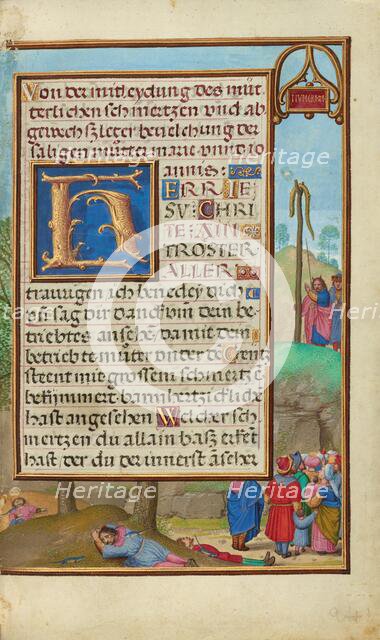 Von der mitleydung des müt
terlichen schmertzen vnd ab
gewechszleter bevelchung der
säligen mutter marie vnnd Jo
annis:
HERR IE
SV CHRI
TE AIN
TRÖSTER
ALLER
traurigen ich benedey dich
vnd sag dir danck vm dein be
triebtes ansehen, da mit dein
betriebte muter vnder de Creutz
steent mit grossem schmertz e
bekimmert barmhertzicliche
hast angesehen Welcher sch
mertzen du allain hasz erket
hast, der du der innerst ascher
NVMERI 21
Heritage
Heritage
Heritage
Heritage
Heritage
Heritage